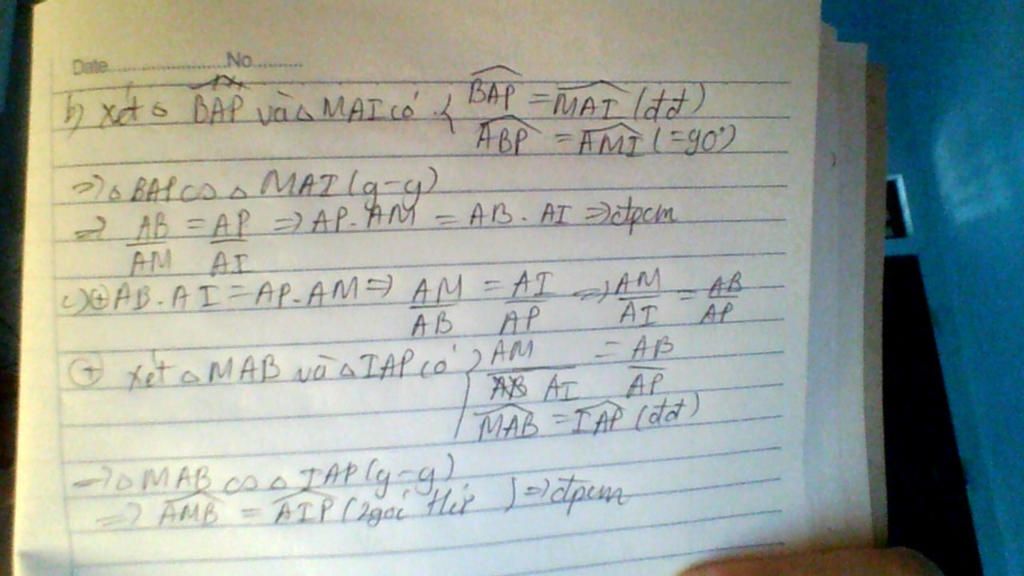 Date..................No..........
b) xét △ BAP và △ MAI có { BAP = MAI (đđ)
ABP = AMI (=90°)
=> △ BAP ∽ △ MAI (g-g)
=> AB/AM = AP/AI => AP.AM = AB.AI => đpcm
c) ⊕ AB.AI = AP.AM => AM/AB = AI/AP => AM/AI = AB/AP
⊕ xét △ MAB và △ IAP có { AM/AI = AB/AP
MAB = IAP (đđ)
=> △ MAB ∽ △ IAP (g-g)
=> AMB = AIP (2 góc) => đpcm